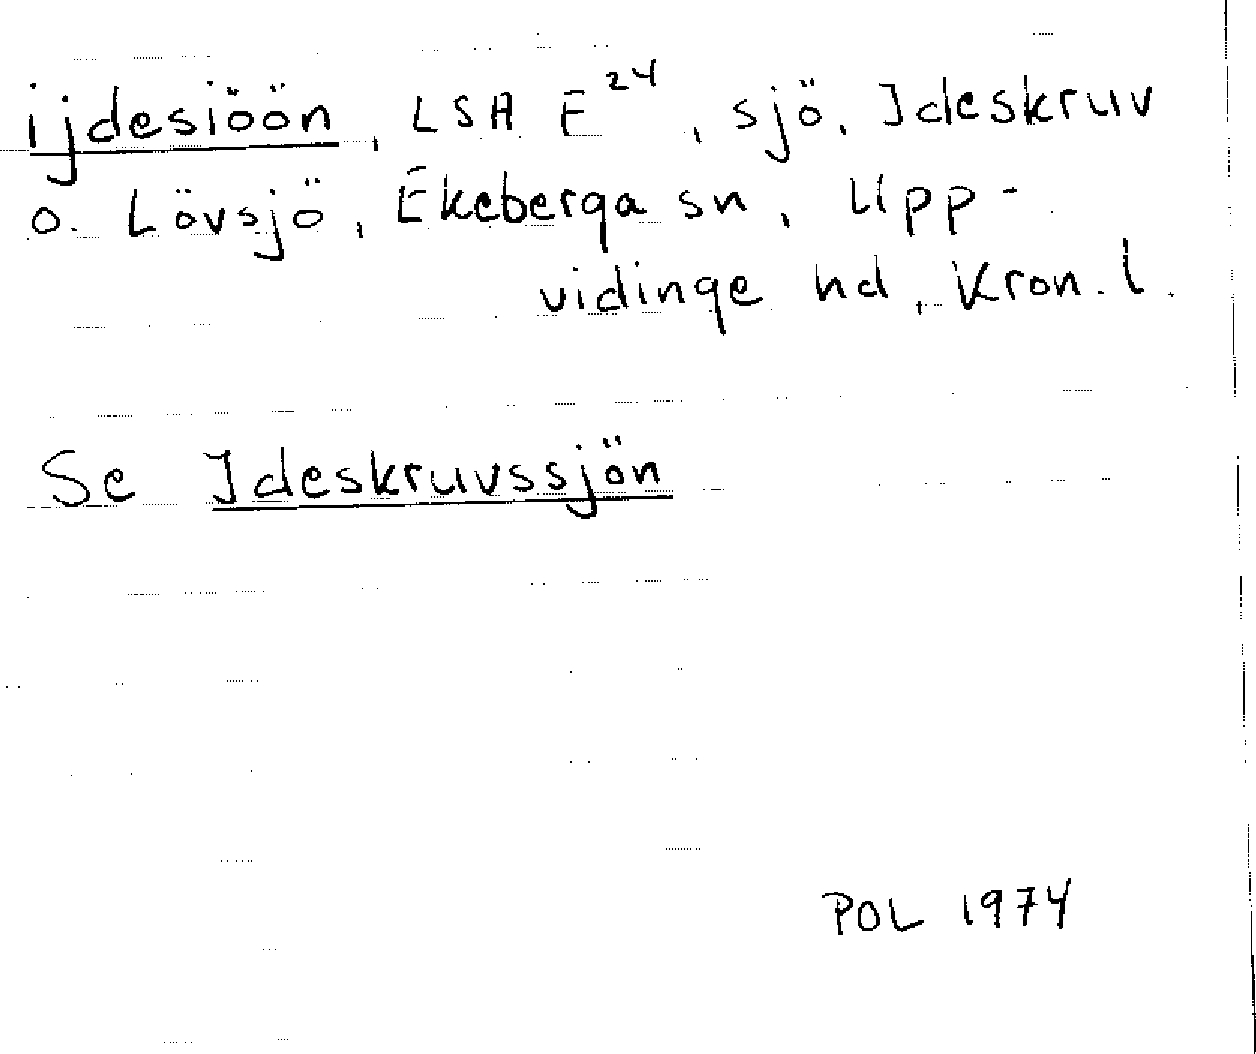 ijdesiöön, LSA E²⁴, sjö, Ideskruv
o. Lövsjö, Ekeberga sn, Upp-
vidinge hd, Kron. l.
Se Ideskruvssjön
POL 1974